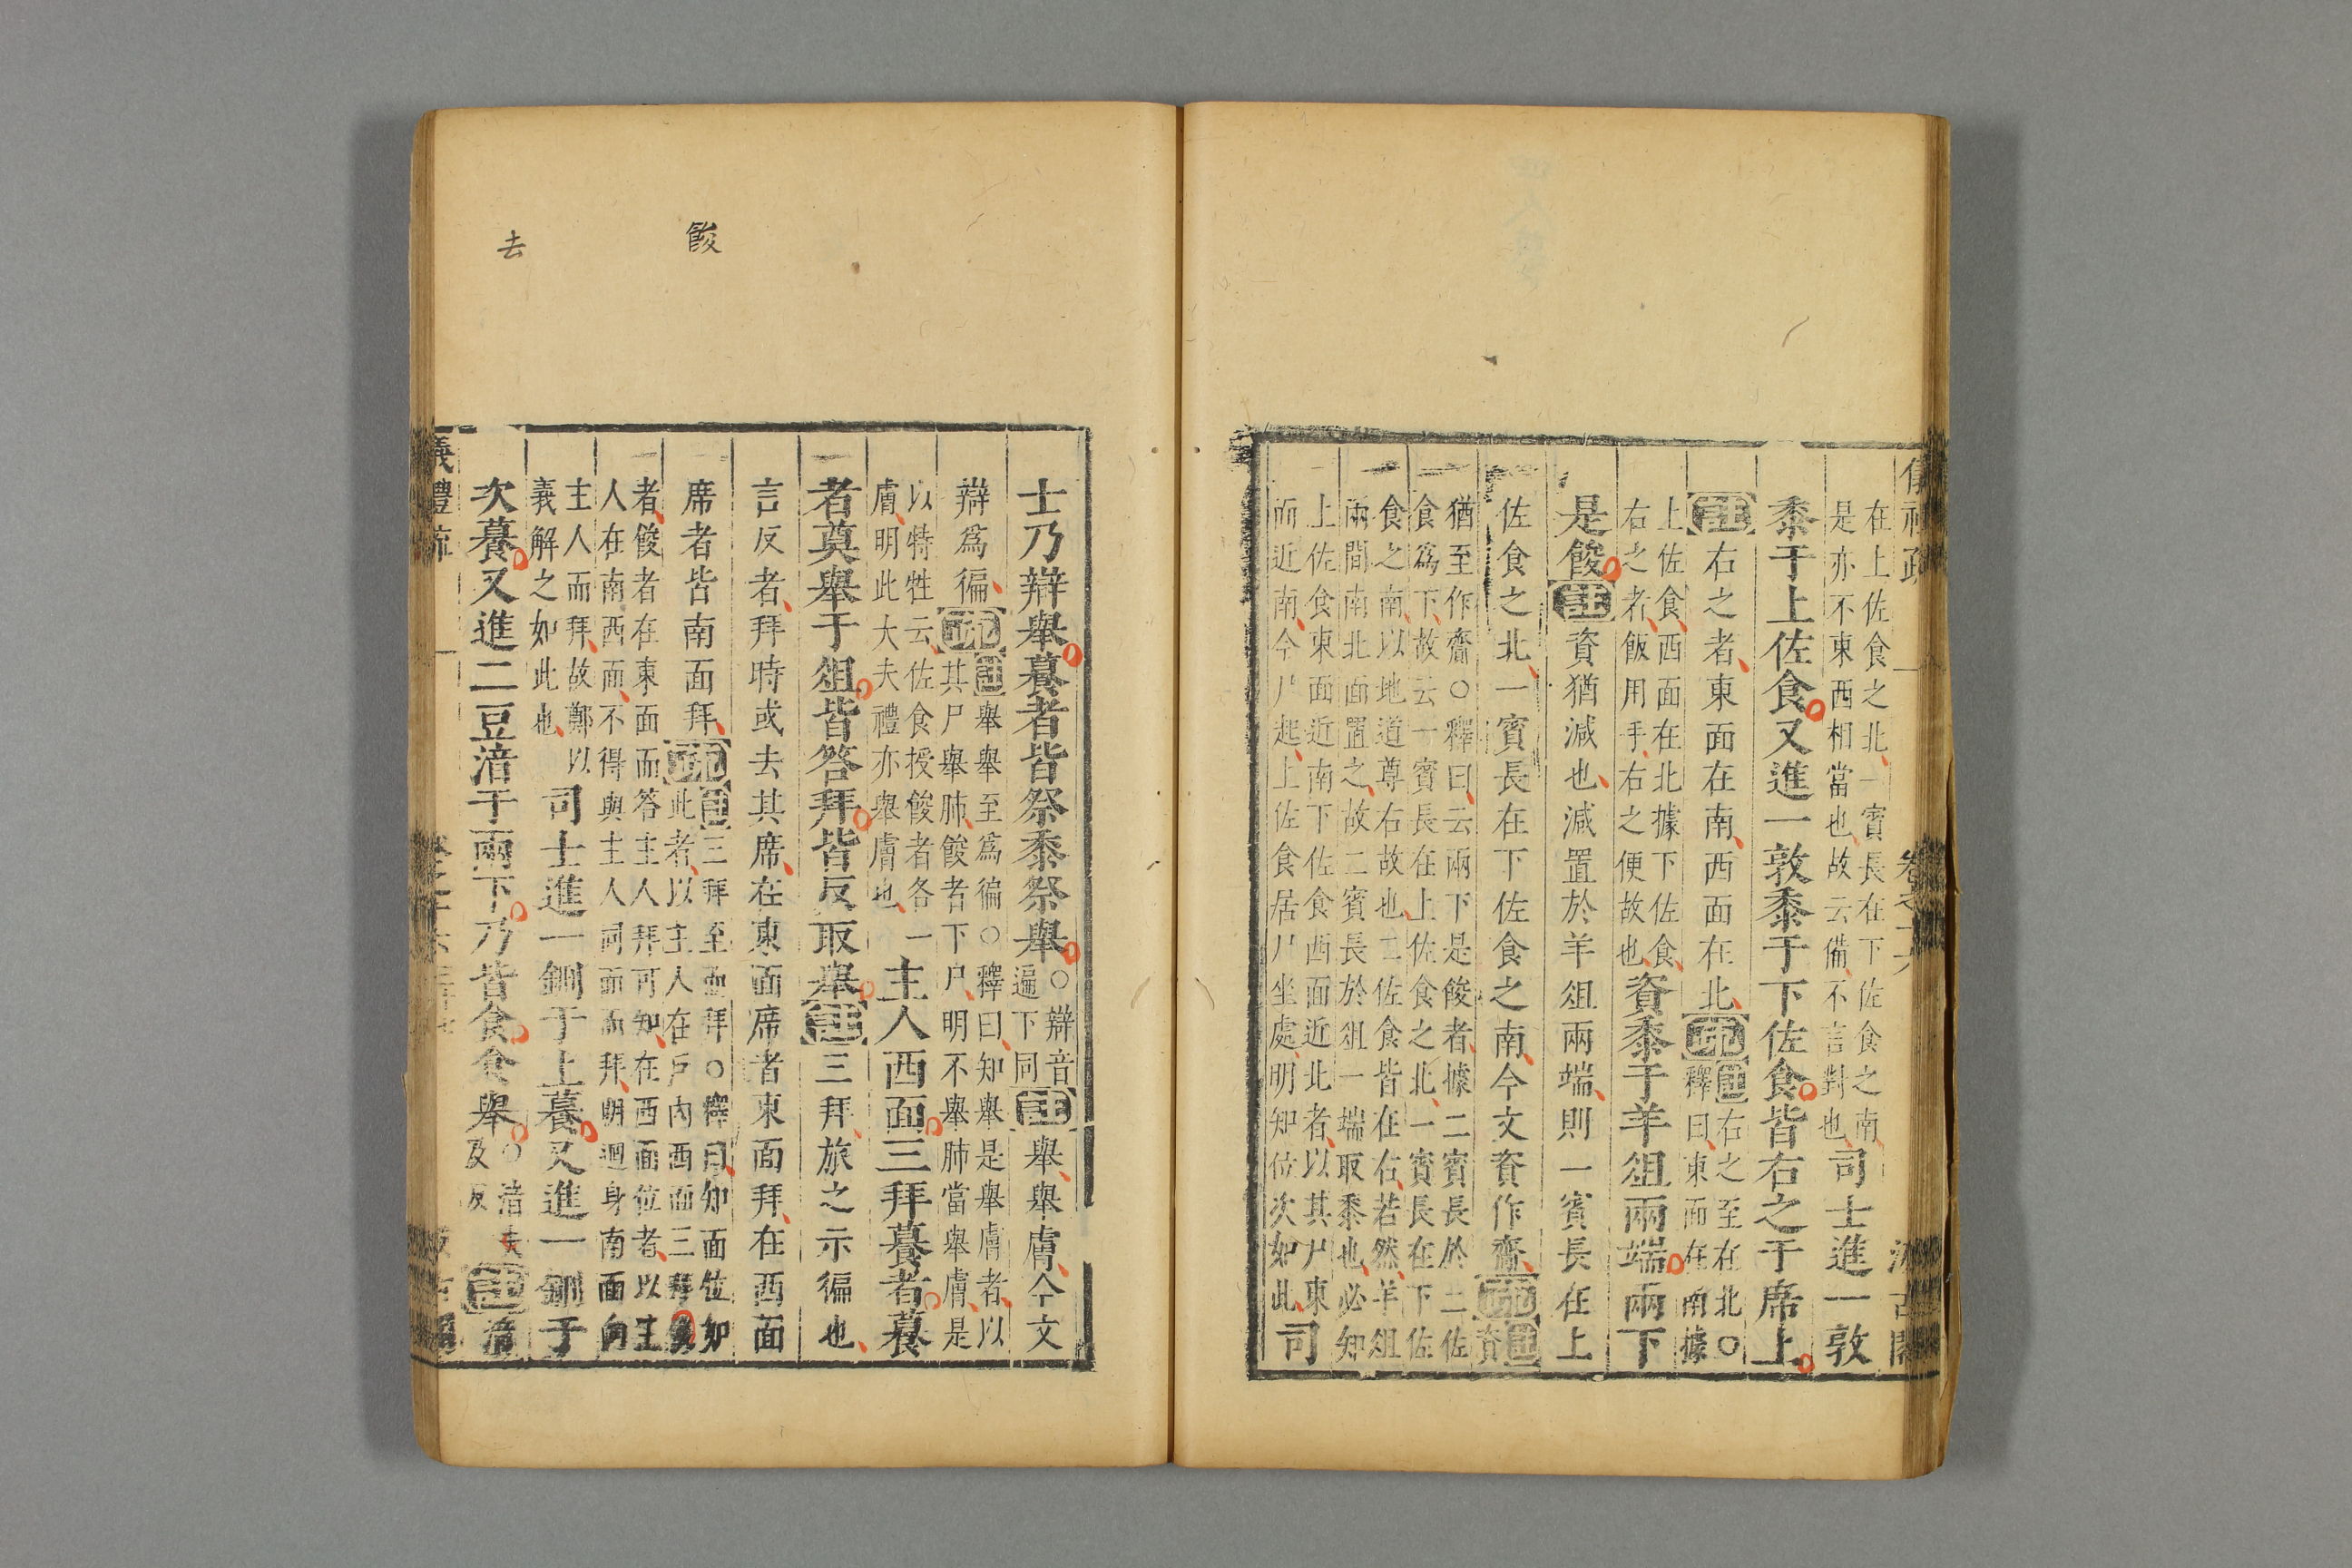 在上佐食之北一賓長在下佐食之南
是亦不東西相當也故云備不言對也司士進一敦
黍于上佐食又進一敦黍于下佐食皆右之于席上
註右之者東面在南西面在北疏疏右之至在北○
釋曰東面在南據
上佐食西面在北據下佐食
右之者飯用手右之便故也資黍于羊俎兩端兩下
是餕註資猶減也減置於羊俎兩端則一賓長在上
佐食之北一賓長在下佐食之南今文資作齎疏資
猶至作齎○釋曰云兩下是餕者據二賓長於二佐
食為下故云一賓長在上佐食之北一賓長在下佐
食之南以地道尊右故也二佐食皆在右若然羊俎
兩間南北面置之故二賓長於俎一端取黍也必知
上佐食東面近南下佐食西面近北者以其尸東
面近南今尸起上佐食居尸坐處明知位次如此司
士乃辯舉䉵者皆祭黍祭舉○辯音
遍下同註舉舉膚今文
辯為徧疏舉舉至為徧○釋曰知舉是舉膚者以
其尸舉肺餕者下尸明不舉肺當舉膚是
以特牲云佐食授餕者各一
膚明此大夫禮亦舉膚也主人西面三拜䉵者䉵
者奠舉于俎皆答拜皆反取舉註三拜旅之示徧也
言反者拜時或去其席在東面席者東面拜在西面
席者皆南面拜疏三拜至面拜○釋曰知面位如
此者以主人在戶內西面三拜䉵
者餕者在東面而答主人拜可知在西面位者以主
人在南西面不得與主人同面而拜明迴身南面向
主人而拜故鄭以
義解之如此也司士進一鉶于上䉵又進一鉶于
次䉵又進二豆湆于兩下乃皆食食舉○湆去
及反註湆
餕
去